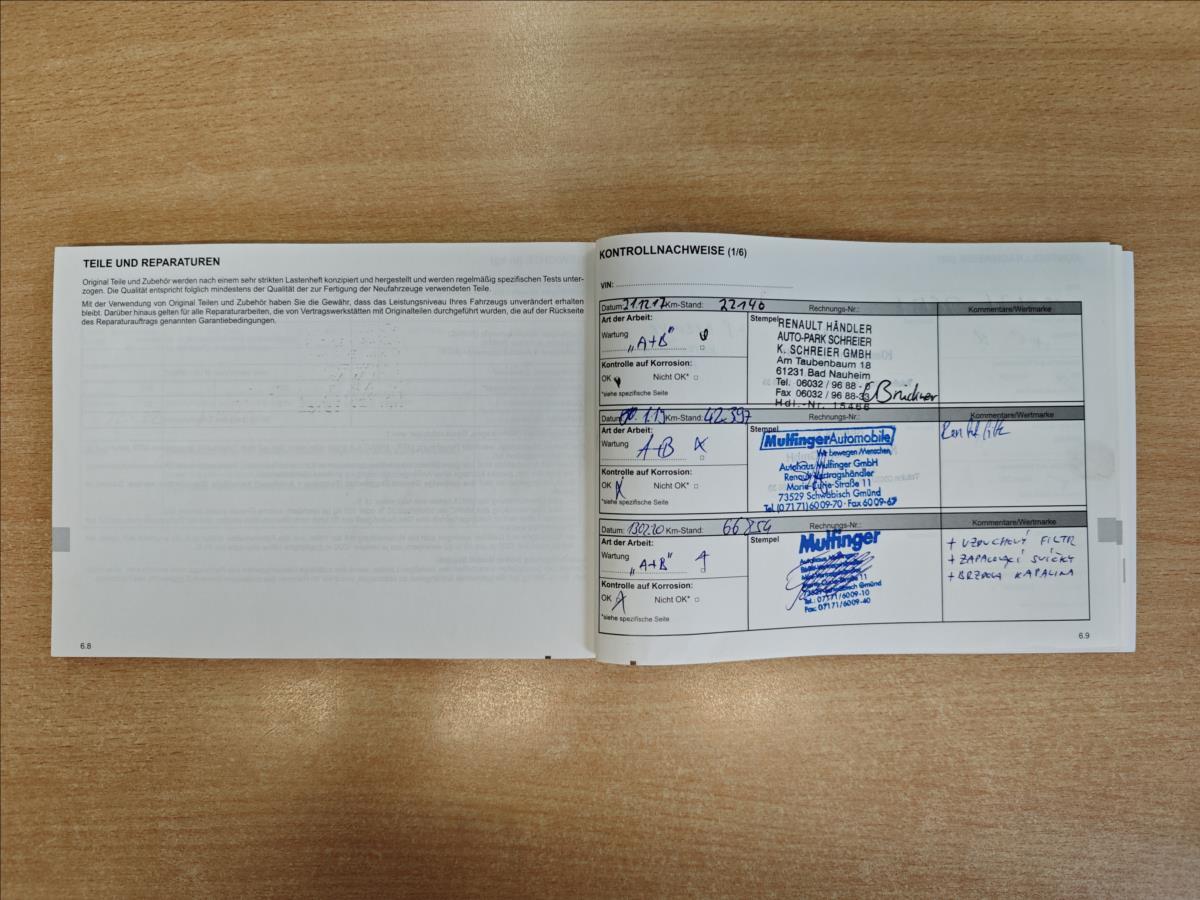 TEILE UND REPARATUREN
Original Teile und Zubehör werden nach einem sehr strikten Lastenheft konzipiert und hergestellt und werden regelmäßig spezifischen Tests unter-
zogen. Die Qualität entspricht folglich mindestens der Qualität der zur Fertigung der Neufahrzeuge verwendeten Teile.
Mit der Verwendung von Original Teilen und Zubehör haben Sie die Gewähr, dass das Leistungsniveau Ihres Fahrzeugs unverändert erhalten
bleibt. Darüber hinaus gelten für alle Reparaturarbeiten, die von Vertragswerkstätten mit Originalteilen durchgeführt wurden, die auf der Rückseite
des Reparaturauftrags genannten Garantiebedingungen.
6.8
KONTROLLNACHWEISE (1/6)
VIN:
Datum: 21.12.17 Km-Stand: 22146
Rechnungs-Nr.:
Kommentare/Wertmarke
Art der Arbeit:
Wartung
"A+B"
Kontrolle auf Korrosion:
OK Nicht OK*
*siehe spezifische Seite
Stempel
RENAULT HÄNDLER
AUTO-PARK SCHREIER
K. SCHREIER GMBH
Am Taubenbaum 18
61231 Bad Nauheim
Tel. 06032 / 96 88 -
Fax 06032 / 96 88-33
Hdl.-Nr. 15466
Bruckner
Datum: 1.19 Km-Stand: 42397
Rechnungs-Nr.:
Kommentare/Wertmarke
Art der Arbeit:
Wartung
A+B
Kontrolle auf Korrosion:
OK Nicht OK*
*siehe spezifische Seite
Stempel
Mulfinger Automobile
Wir bewegen Menschen
Autohaus Mulfinger GmbH
Renault Vertragshändler
Marie-Curie-Straße 11
73529 Schwäbisch Gmünd
Tel. (07171) 6009-70 · Fax 6009-67
Datum: 130220 Km-Stand: 66854
Rechnungs-Nr.:
Kommentare/Wertmarke
Art der Arbeit:
Wartung
"A+B"
Kontrolle auf Korrosion:
OK Nicht OK*
*siehe spezifische Seite
Stempel
Mulfinger
73529 Schwäbisch Gmünd
Tel.: 07171/6009-10
Fax: 07171/6009-40
+ VZDUCHOVÝ FILTR
+ ZAPALOVACÍ SVÍČKY
+ BRZDOVÁ KAPALINA
6.9